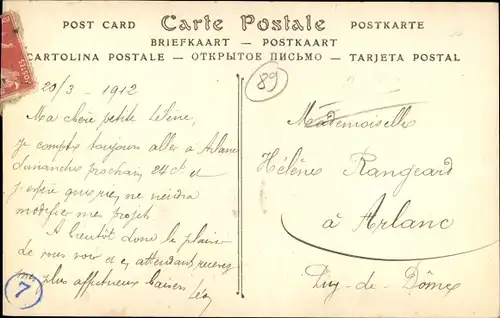 POST CARD Carte Postale POSTKARTE
BRIEFKAART — POSTKAART
CARTOLINA POSTALE — ОТКРЫТОЕ ПИСЬМО — TARJETA POSTAL
89
20/3 - 1912
Ma chère petite Hélène,
je compte toujours aller à Arlanc
dimanche prochain, 24 ct et
j'espère que rien ne viendra
modifier mes projets
A bientôt donc le plaisir
de vous voir et en attendant, recevez
mes plus affectueux baisers
Léo
7
Mademoiselle
Hélène Rangeard
à Arlanc
Puy-de-Dôme